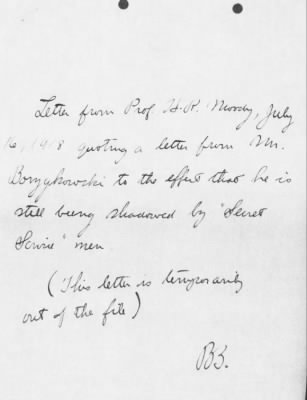 Letter from Prof. H. R. Moody, July
16, 1918 quoting a letter from Mr.
Borzykowski to the effect that he is
still being shadowed by "Secret
Service" men
(This letter is temporarily
out of the file)
BS.